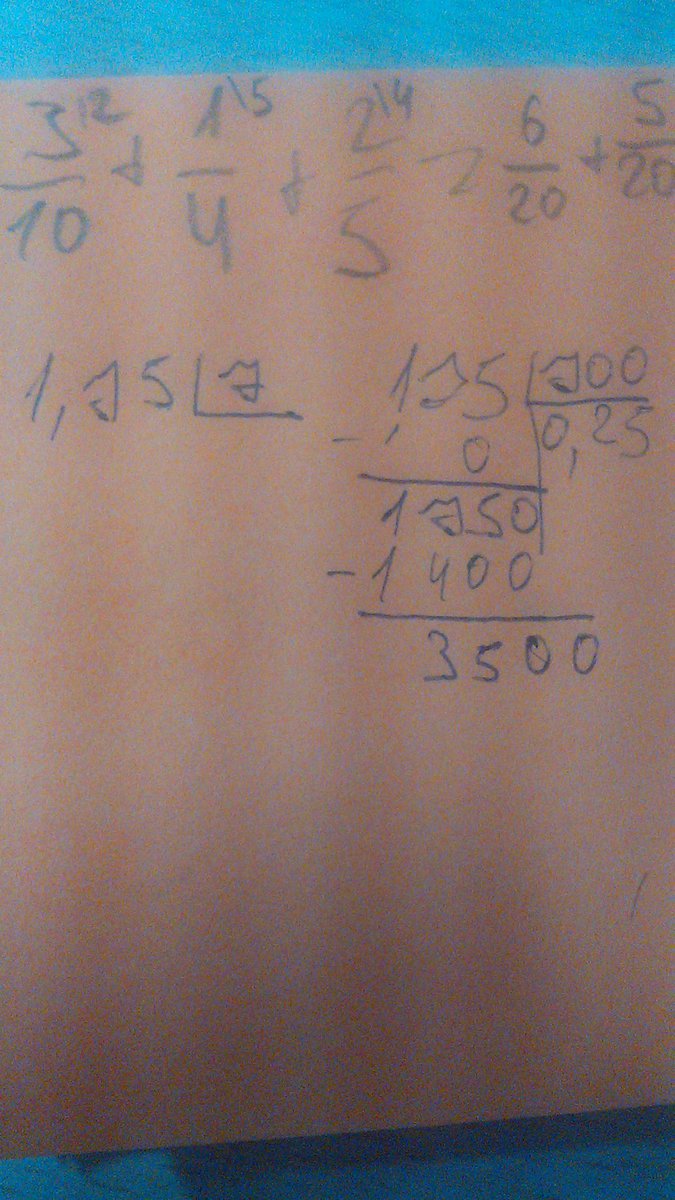 3\2/10 + 1\5/4 + 2\4/5 = 6/20 + 5/20
1,75 7
175 700
- 0 0,25
1750
-1400
3500